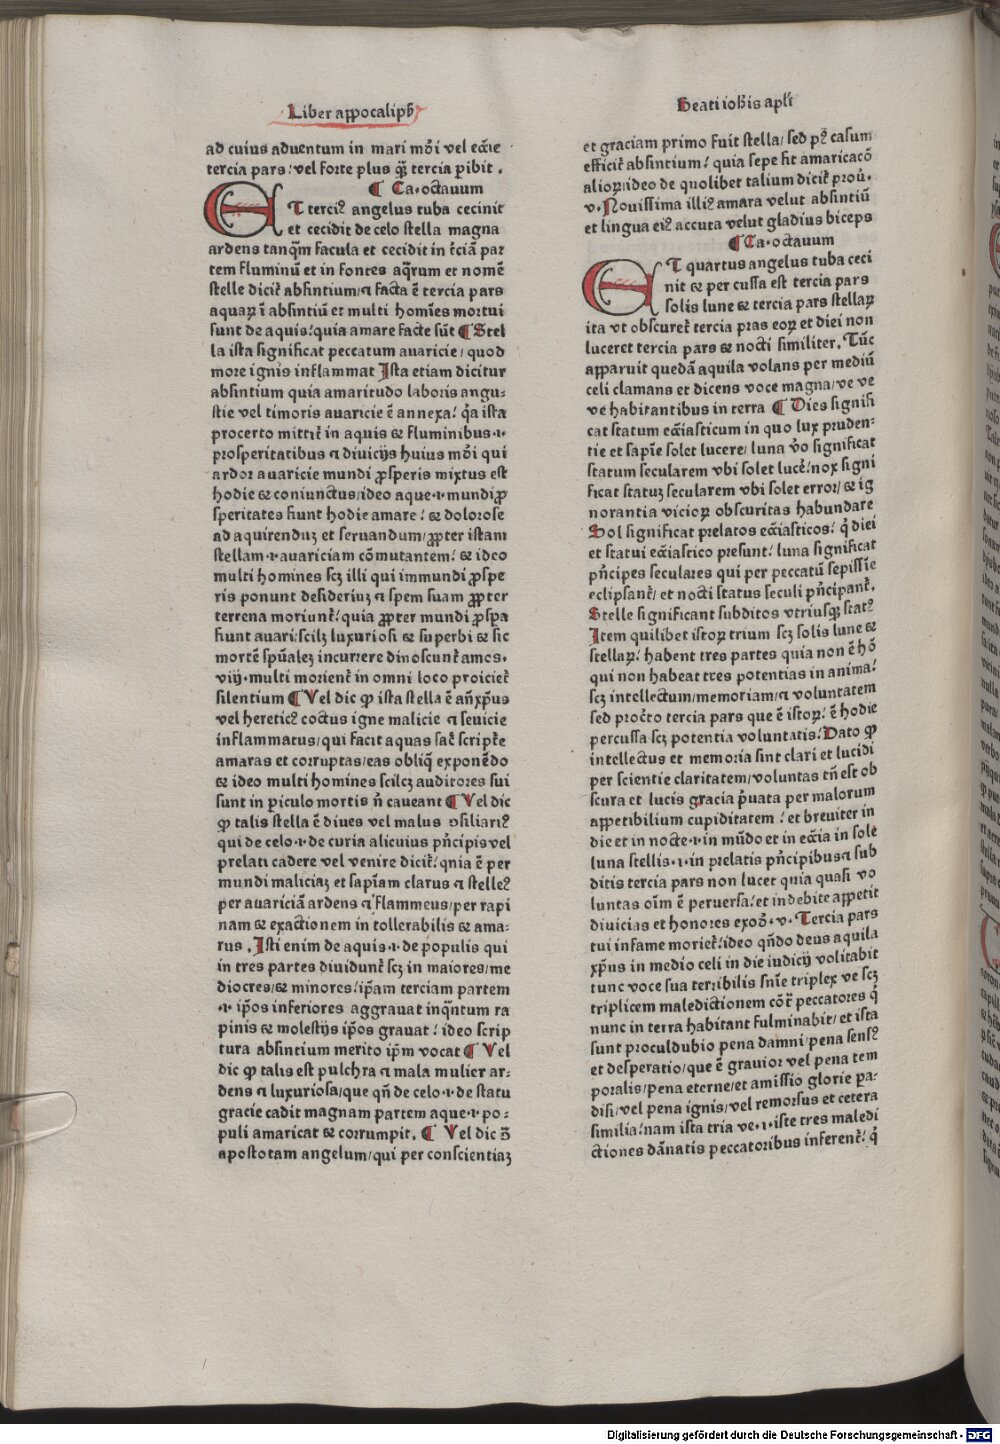 Liber appocalipẜ
ad cuius aduentum in mari mōi vel eccīe
tercia pars/vel forte plus q̄ꝫ tercia ꝑibit.
¶ Ca.octauum
ET tercius angelus tuba cecinit
et cecidit de celo stella magna
ardens tanq̄m facula et cecidit in t̄ciā par
tem fluminū et in fontes aq̄rum et nomē
stelle dicit̄ absintium/⁊ facta ē tercia pars
aquaꝝ ī absintiū et multi homīes mortui
sunt de aquis/quia amare facte sūt ¶ Stel
la ista significat peccatum auaricie/quod
more ignis inflammat Ista etiam dicitur
absintium quia amaritudo laboris angu:
stie vel timoris auaricie ē annexa/ q̄a ista
procerto mittit̄ in aquis ⁊ fluminibus.ı.
prosperitatibus ⁊ diuicijs huius mōi qui
ardor auaricie mundi ꝓsperis mixtus est
hodie ⁊ coniunctus/ideo aque.ı.mundi ꝓ
speritates fiunt hodie amare/ ⁊ dolorose
ad aquirenduꝫ et seruandum/ꝓpter istam
stellam.ı.auariciam cōmutantem/ ⁊ ideo
multi homines scꝫ illi qui immundi ꝓspe
ris ponunt desideriuꝫ ⁊ spem suam ꝓpter
terrena moriunt̄/quia ꝓpter mundi ꝓspa
fiunt auari/scilꝫ luxuriosi ⁊ superbi ⁊ sic
mortē spūaleꝫ incurrere dinoscunt̄ amos.
viij.multi morient̄ in omni loco proiciet̄
silentium ¶ Vel dic ꝙ ista stella ē añxp̄us
vel hereticꝰ coctus igne malicie ⁊ seuicie
inflammatus/qui facit aquas sac̄ script̄e
amaras et corruptas/eas obliq̄ exponēdo
⁊ ideo multi homines scilcꝫ auditores sui
sunt in ꝑiculo mortis n̄ caueant ¶ Vel dic
ꝙ talis stella ē diues vel malus ꝯsiliariꝰ
qui de celo.ı.de curia alicuius pn̄cipis vel
prelati cadere vel venire dicit̄/qnia ē per
mundi maliciaꝫ et sapīam clarus ⁊ stelleꝰ
per auariciā ardens ⁊ flammeus/per rapi
nam ⁊ exactionem in tollerabilis ⁊ ama:
rus. Isti enim de aquis.ı.de populis qui
in tres partes diuidunt̄ scꝫ in maiores/me
diocres/⁊ minores/ip̄am terciam partem
.ı. ip̄os inferiores aggrauat inq̄ntum ra
pinis ⁊ molestijs ip̄os grauat/ ideo scrip
tura absintium merito ip̄m vocat ¶ Vel
dic ꝙ talis est pulchra ⁊ mala mulier ar:
dens ⁊ luxuriosa/que qn̄ de celo.ı.de statu
gracie cadit magnam partem aque.ı.po:
puli amaricat ⁊ corrumpit. ¶ Vel dic
apostotam angelum/qui per conscientiaꝫ
Beati ioħis apl̄i
et graciam primo fuit stella/sed pꝰ casum
efficit̄ absintium/ quia sepe fit amaricacō
alioꝝ/ideo de quolibet talium dicit̄ prou̅.
v.Nouissima illiꝰ amara velut absintiū
et lingua eiꝰ accuta velut gladius biceps
¶ Ca.octauum
ET quartus angelus tuba ceci
nit ⁊ per cussa est tercia pars
solis lune ⁊ tercia pars stellaꝝ
ita vt obscuret̄ tercia pras eoꝝ et diei non
luceret tercia pars ⁊ nocti similiter. Tūc
apparuit quedā aquila volans per mediū
celi clamans et dicens voce magna/ve ve
ve habitantibus in terra ¶ Dies signifi
cat statum ecc̄iasticum in quo lux pruden:
tie et sapīe solet lucere/ luna v̄o significat
statum secularem vbi solet luc̄e/nox signi
ficat statuꝫ secularem vbi solet error/ ⁊ ig
norantia vicioꝝ obscuritas habundare
Sol significat prelatos ecc̄iasticos/ q̄ diei
et statui ecc̄iastico presunt/ luna significat
pn̄cipes seculares qui per peccatū sepissīe
eclipsant̄/ et nocti status seculi pn̄cipant̄.
Stelle significant subditos vtriusqꝫ statꝰ
Item quilibet istoꝝ trium scꝫ solis lune ⁊
stellaꝝ/ habent tres partes quia non ē hō
qui non habeat tres potentias in anima/
scꝫ intellectum/memoriam/⁊ voluntatem
sed proc̄to tercia pars que ē istoꝝ/ ē hodie
percussa scꝫ potentia voluntatis/Dato ꝙ
intellectus et memoria sint clari et lucidi
per scientie claritatem/voluntas tn̄ est ob
scura et lucis gracia p̄uata per malorum
appetibilium cupiditatem/ et breuiter in
die et in nocte.ı.in mūdo et in ecc̄ia in sole
luna stellis.ı.in prelatis pn̄cipibus⁊ sub
ditis tercia pars non lucet quia quasi vo
luntas oīm ē peruersa/et indebite appetit
diuicias et honores exoō.v.Tercia pars
tui infame moriet̄/ideo qn̄do deus aquila
xp̄us in medio celi in die iudicij volitabit
tunc voce sua terribilis snīe triplex ve scꝫ
triplicem maledictionem cōt̄ peccatores q̄
nunc in terra habitant fulminabit/et ista
sunt proculdubio pena damni/pena sensꝰ
et desperatio/que ē grauior vel pena tem
poralis/pena eterne/et amissio glorie pa:
disi/vel pena ignis/vel remorsus et cetera
similia/nam ista tria ve.ı.iste tres maledi
ctiones dānatis peccatoribus inferent̄/ q̄
Digitalisierung gefördert durch die Deutsche Forschungsgemeinschaft - DFG